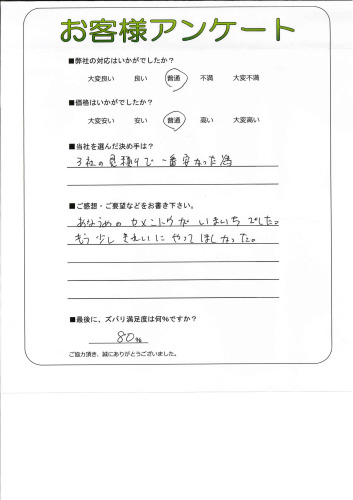 お客様アンケート
■弊社の対応はいかがでしたか？
大変良い 良い 普通 不満 大変不満
■価格はいかがでしたか？
大変安い 安い 普通 高い 大変高い
■当社を選んだ決め手は？
3社の見積りで一番安なった為
■ご感想・ご要望などをお書き下さい。
あなうめのセメントウがいまいちでした。
もう少しきれいにやってほしなった。
■最後に、ズバリ満足度は何%ですか？
80%
ご協力頂き、誠にありがとうございました。